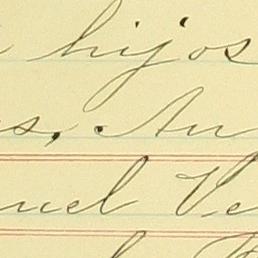 hijos
s, Au
uel Ve